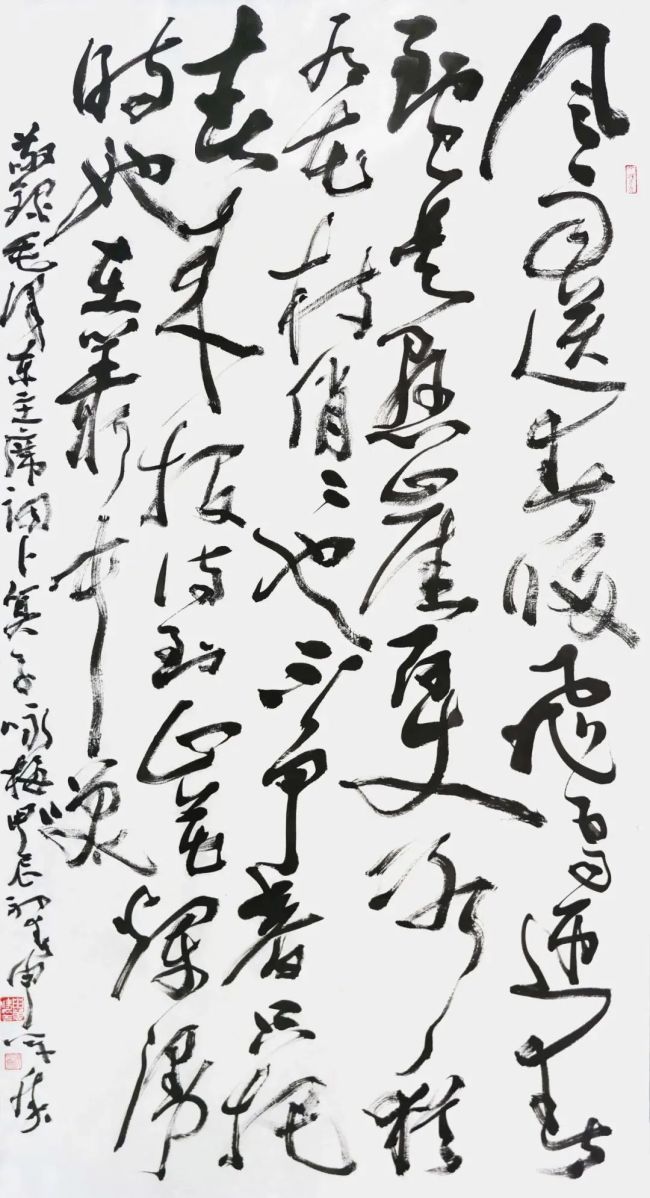 风雨送春归飞雪迎春
到已是悬崖百丈冰犹
有花枝俏〻也不争春只把
春来报待到山花烂漫
时她在叢中笑
敬录毛泽东主席词卜算子咏梅甲辰初春申